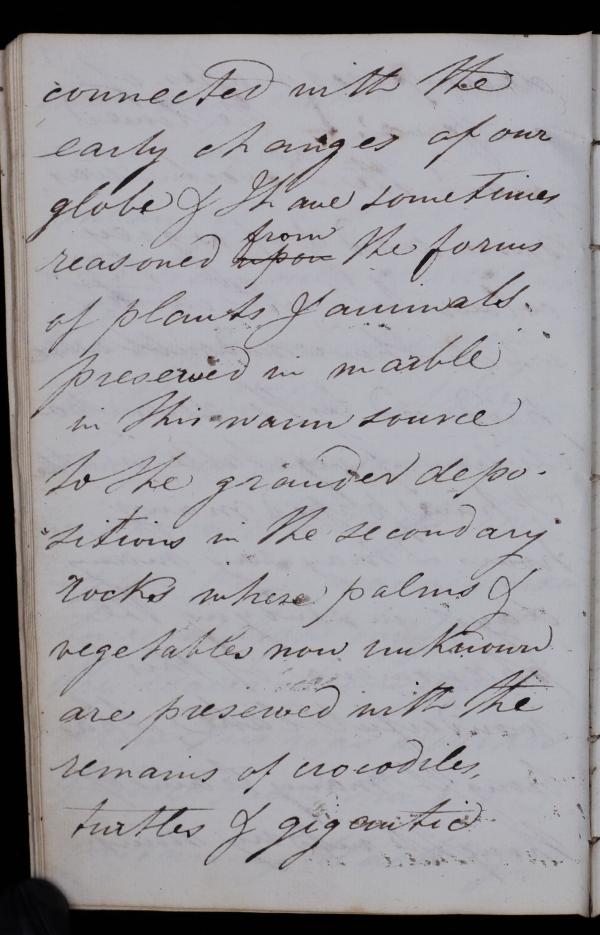 connected with the
early changes of our
globe & I have sometimes
reasoned upon from the forms
of plants & animals
preserved in marble
in this warm source
to the grander depo-
sitions in the secondary
rocks where palms &
vegetables now unknown
are preserved with the
remains of crocodiles,
turtles & gigantic